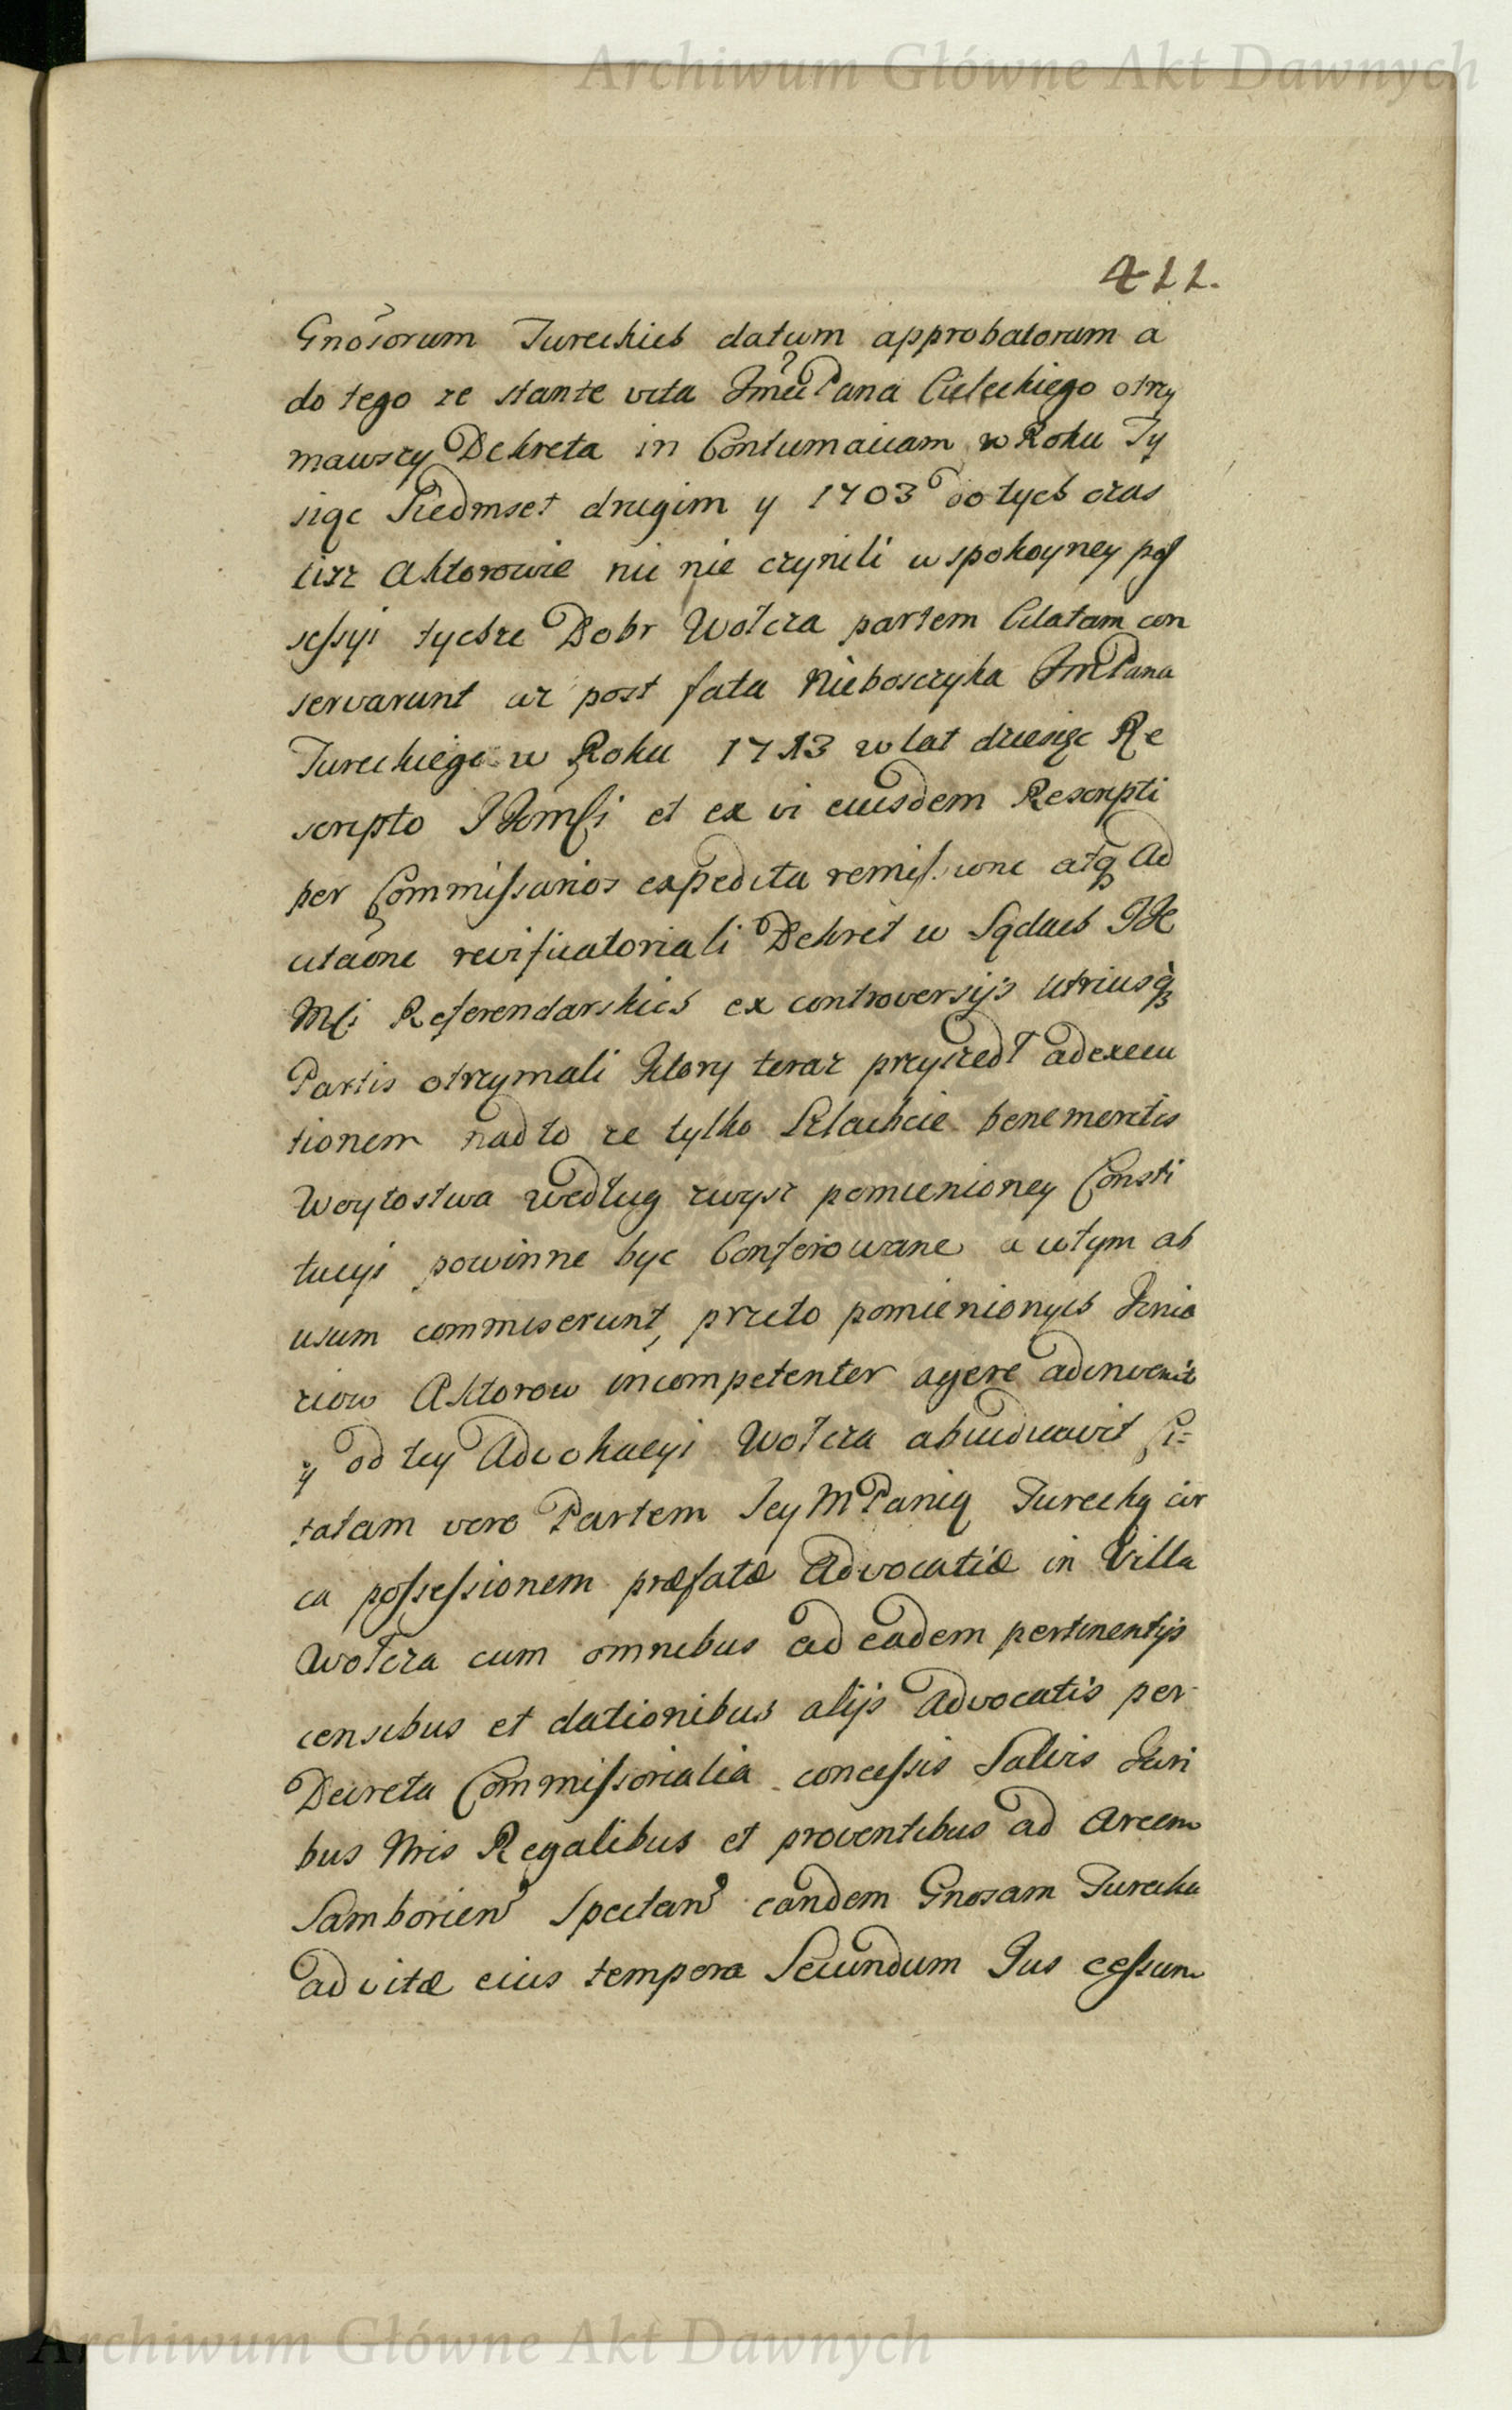 Archiwum Główne Akt Dawnych
411.
Gnosorum Tureckich datum approbatorum a
do tego ze stante vita Jmći Pana Cieleckiego otrzy
mawszy Dekreta in Contumaciam w Roku Ty
siąc Siedmset drugim y 1703 do tych czas
cisz Aktorowie nic nie czynili w spokoyney pos
sessyi tychze Dobr Wołcza partem Citatam con
servarunt az post fata Nieboszczyka Jm Pana
Tureckiego w Roku 1713 w lat dziesięc Re
scripto JKmści et ex vi eiusdem Rescripti
per Commissarios expedita remissione atq Ad
citaone revificatoriali Dekret w Sądach JK
Mści Referendarskich ex controversijs utriusq
Partis otrzymali ktory teraz przyszedł ad execu
tionem nadto ze tylko Szlachcie benemeritis
Woytostwa według zwysz pomienioney Consti
tucyi powinne byc Conferowane a w tym ab
usum commiserunt, przeto pomienionych Jmio
ziow Aktorow incompetenter agere adinvenit
y od tey Adwokacyi Wołcza abiudicavit Ci=
tatam vero Partem Jey M Panią Turecką cir
ca possessionem præfatæ Advocatiæ in Villa
Wołcza cum omnibus ad eadem pertinentijs
censibus et dationibus alijs Advocatis per
Decreta Commissorialia concessis Salvis Juri
bus Nris Regalibus et proventibus ad Arcem
Samborien Spectan eandem Gnosam Turecka
ad vitæ eius tempora Secundum Jus cessum
Archiwum Główne Akt Dawnych